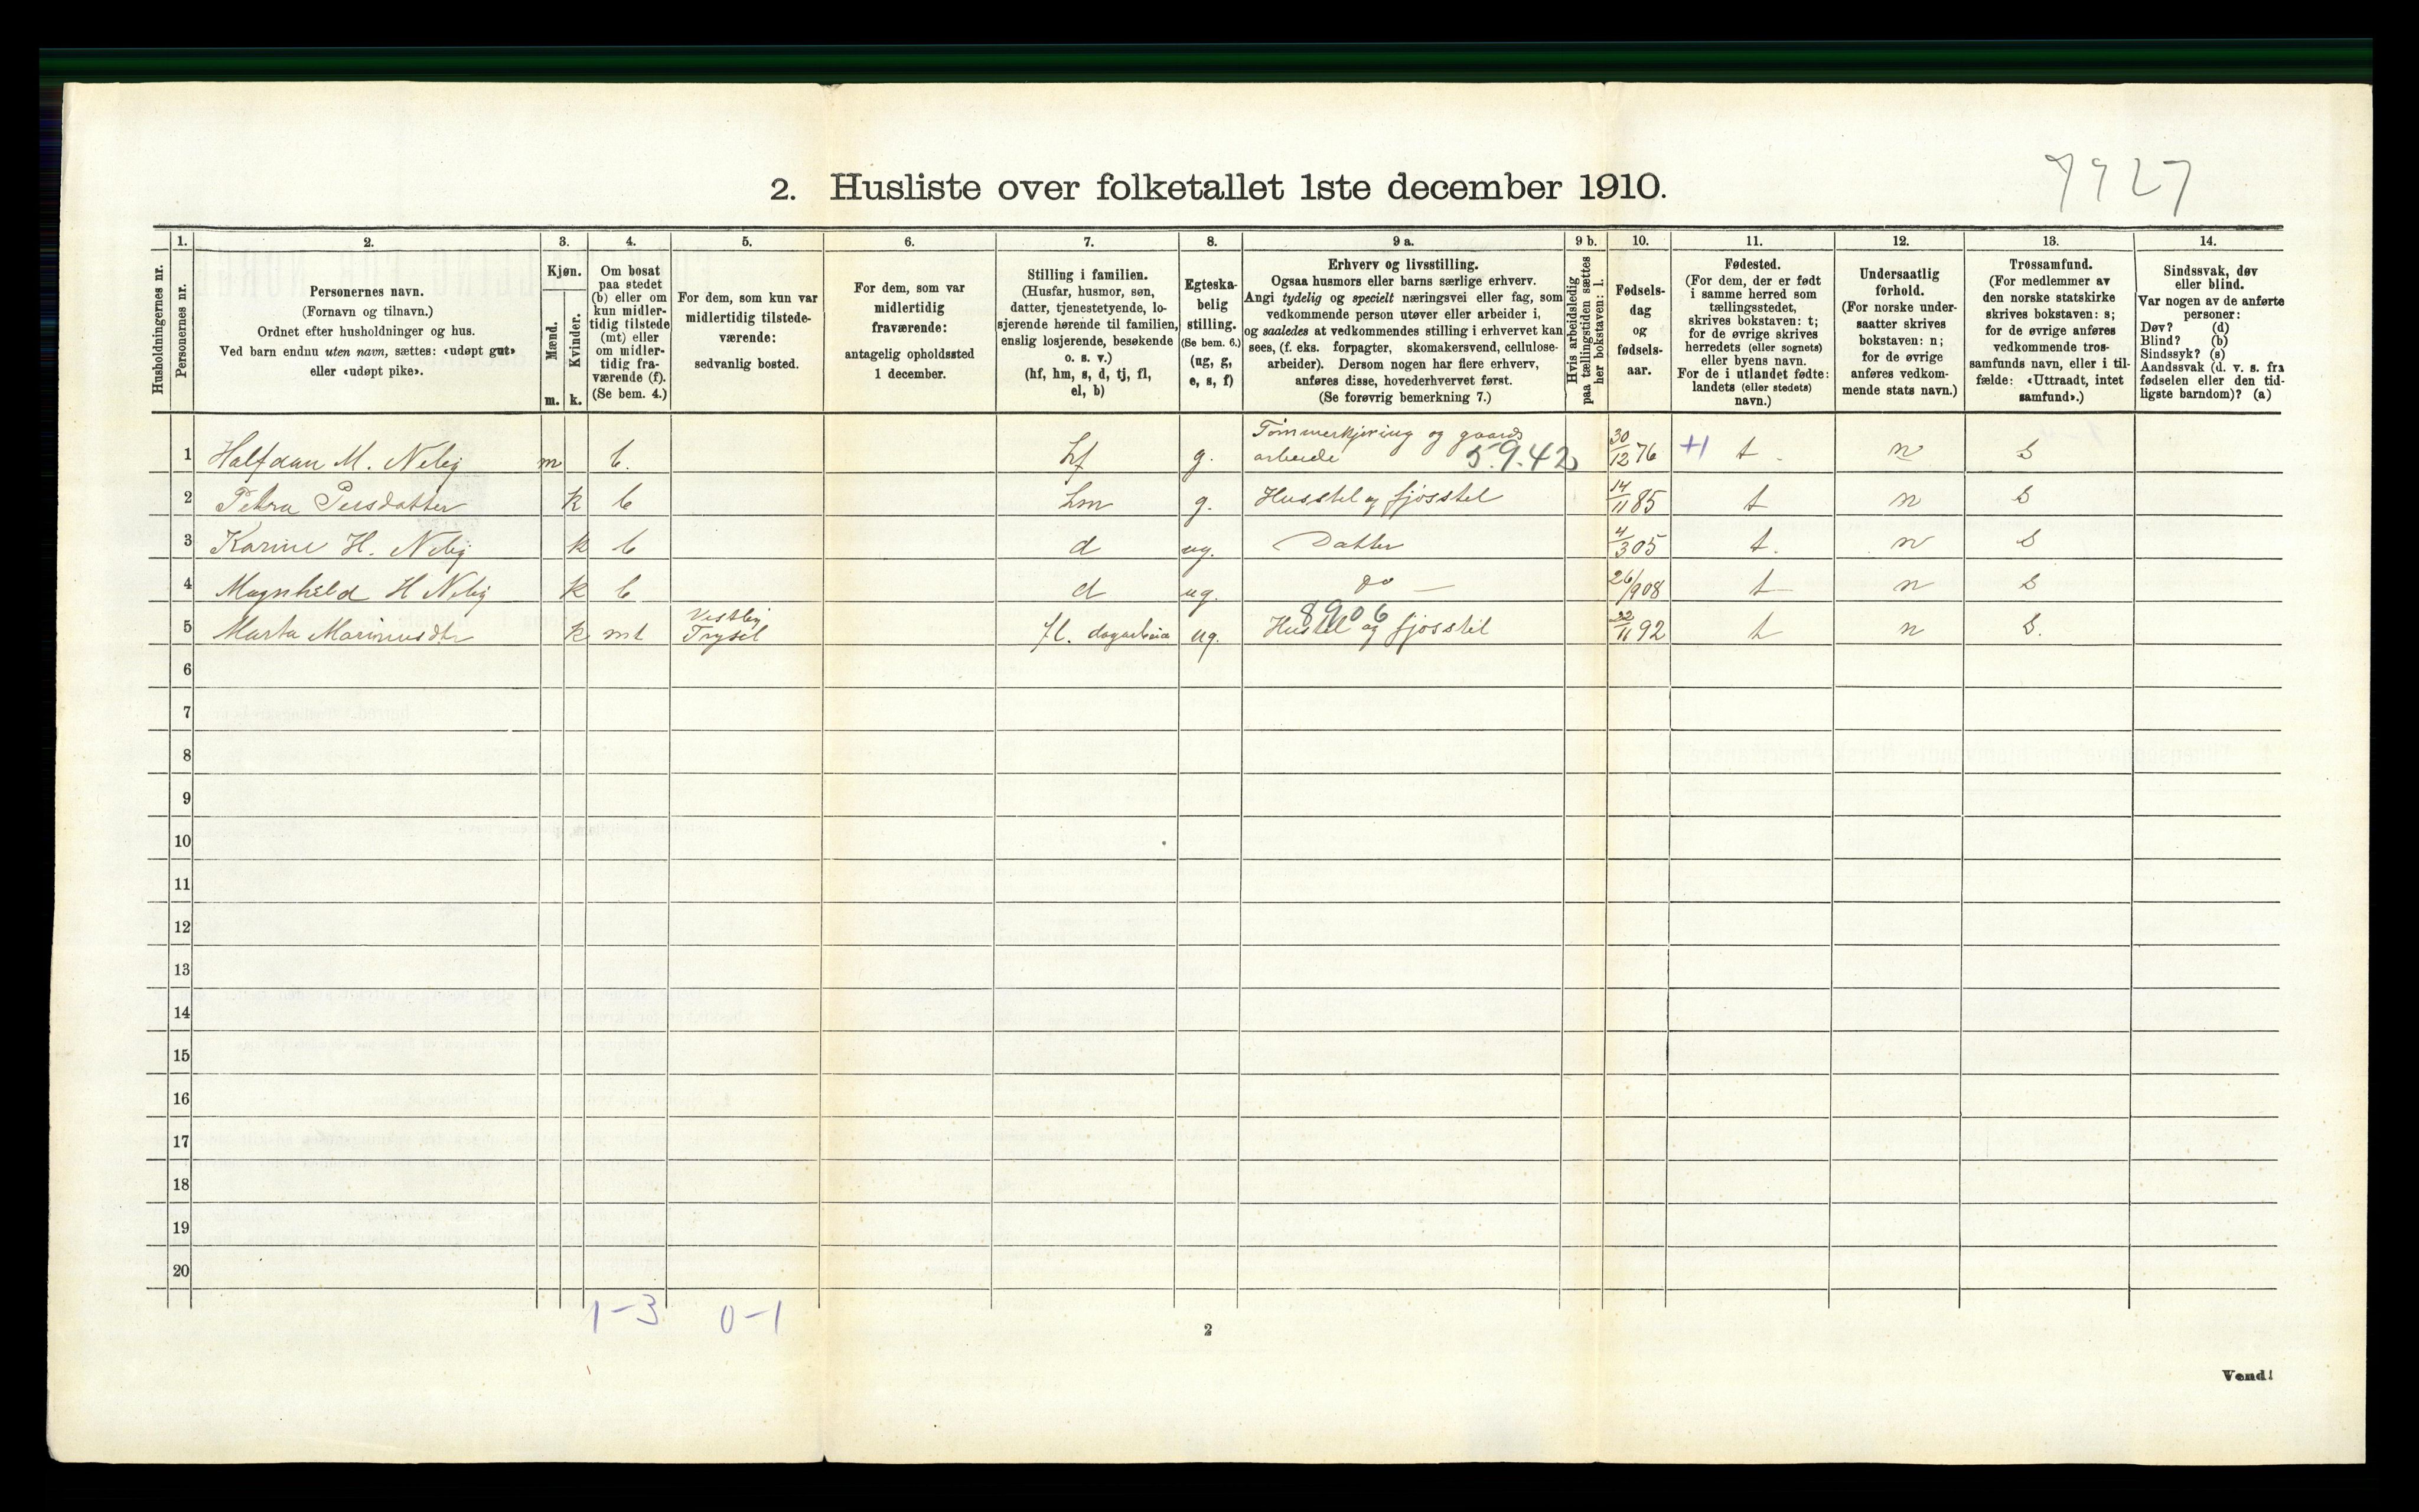 7927
2. Husliste over folketallet 1ste december 1910.
Husholdningernes nr.
1.
Personernes nr.
2.
Personernes navn.
(Fornavn og tilnavn.)
Ordnet efter husholdninger og hus.
Ved barn endnu uten navn, sættes: «udøpt gut»
eller «udøpt pike».
3.
Kjøn.
Mænd.
Kvinder.
m. k.
4.
Om bosat
paa stedet
(b) eller om
kun midler-
tidig tilstede
(mt) eller
om midler-
tidig fra-
værende (f).
(Se bem. 4.)
5.
For dem, som kun var
midlertidig tilstede-
værende:
sedvanlig bosted.
6.
For dem, som var
midlertidig
fraværende:
antagelig opholdssted
1 december.
7.
Stilling i familien.
(Husfar, husmor, søn,
datter, tjenestetyende, lo-
sjerende hørende til familien,
enslig losjerende, besøkende
o. s. v.)
(hf, hm, s, d, tj, fl,
el, b)
8.
Egteska-
belig
stilling.
(Se bem. 6.)
(ug, g,
e, s, f)
9 a.
Erhverv og livsstilling.
Ogsaa husmors eller barns særlige erhverv.
Angi tydelig og specielt næringsvei eller fag, som
vedkommende person utøver eller arbeider i,
og saaledes at vedkommendes stilling i erhvervet kan
sees, (f. eks. forpagter, skomakersvend, cellulose-
arbeider). Dersom nogen har flere erhverv,
anføres disse, hovederhvervet først.
(Se forøvrig bemerkning 7.)
9 b.
Hvis arbeidsledig
paa tællingstiden sættes
her bokstaven: l.
10.
Fødsels-
dag
og
fødsels-
aar.
11.
Fødested.
(For dem, der er født
i samme herred som
tællingsstedet,
skrives bokstaven: t;
for de øvrige skrives
herredets (eller sognets)
eller byens navn.
For de i utlandet fødte:
landets (eller stedets)
navn.)
12.
Undersaatlig
forhold.
(For norske under-
saatter skrives
bokstaven: n;
for de øvrige
anføres vedkom-
mende stats navn.)
13.
Trossamfund.
(For medlemmer av
den norske statskirke
skrives bokstaven: s;
for de øvrige anføres
vedkommende tros-
samfunds navn, eller i til-
fælde: «Uttraadt, intet
samfund».)
14.
Sindssvak, døv
eller blind.
Var nogen av de anførte
personer:
Døv? (d)
Blind? (b)
Sindssyk? (s)
Aandssvak (d. v. s. fra
fødselen eller den tid-
ligste barndom)? (a)
Tømmerkjøring og gaards
1 Halfdan M. Neby m b. hf g. arbeide 5.9.42 30/12 76 +1 t. n S
2 Petra Persdatter k b hm g. Husstel og fjösstel 14/11 85 t n S
3 Karine H. Neby k b d ug. Datter 4/3 05 t. n S
4 Magnhild H Neby k b d ug. do — 26/9 08 t n S
Vestby 8906
5 Marta Marinusdtr k mt Trysil fl. dagarbeid ug. Hustel og fjösstel 22/11 92 t n S.
6
7
8
9
10
11
12
13
14
15
16
17
18
19
20
1-3 0-1
2
Vend!